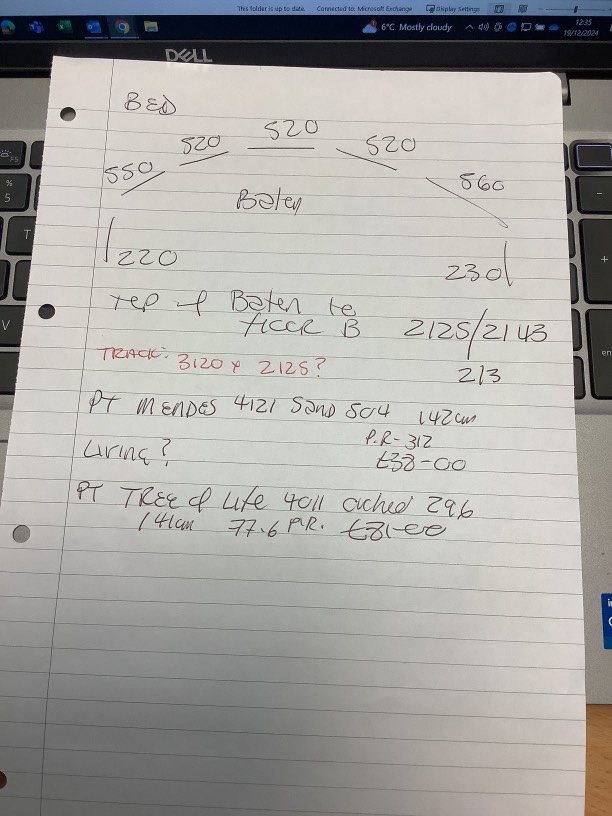 This folder is up to date. Connected to: Microsoft Exchange Display Settings
6°C Mostly cloudy
12:35
19/12/2024
DELL
BED
550 520 520 520 560
Baten
220 230
Top of Baten to
floor B 2125/2143
213
TRACK: 3120 x 2125?
PT MENDES 4121 Sand 504 142cm
P.R-312
£38-00
Living?
PT TREE of Life 4011 296
141cm 77.6 P.R. £81-00